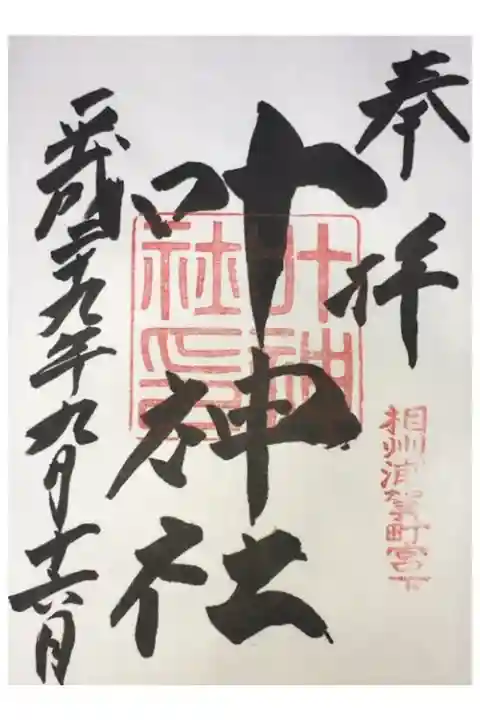 奉拝
相州浦賀町宮下
叶神社
叶神社印
平成二十九年九月十六日